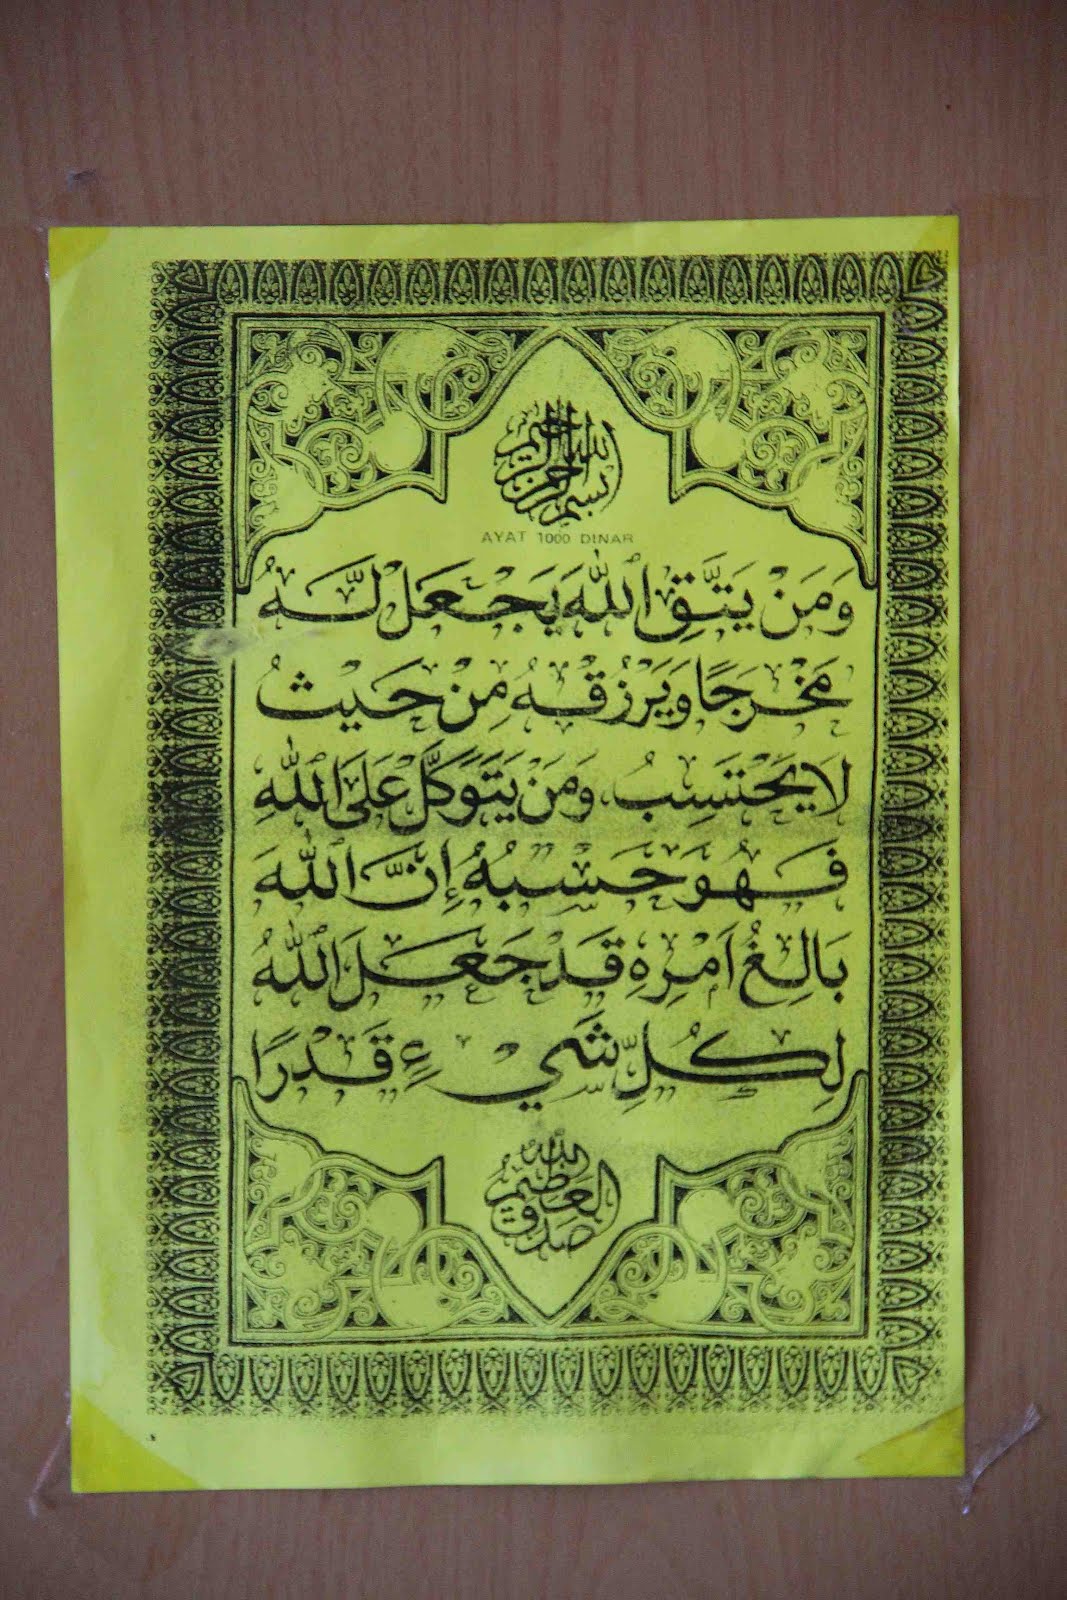 بسم الله الرحمن الرحيم
AYAT 1000 DINAR
وَمَنْ يَتَّقِ ٱللَّهَ يَجْعَلْ لَّهُ
مَخْرَجًا وَيَرْزُقْهُ مِنْ حَيْثُ
لَا يَحْتَسِبُ وَمَنْ يَتَوَكَّلْ عَلَى ٱللَّهِ
فَهُوَ حَسْبُهُ إِنَّ ٱللَّهَ
بَالِغُ اَمْرِهِ قَدْ جَعَلَ ٱللَّهُ
لِكُلِّ شَيْءٍ قَدْرًا
صدق الله العظيم